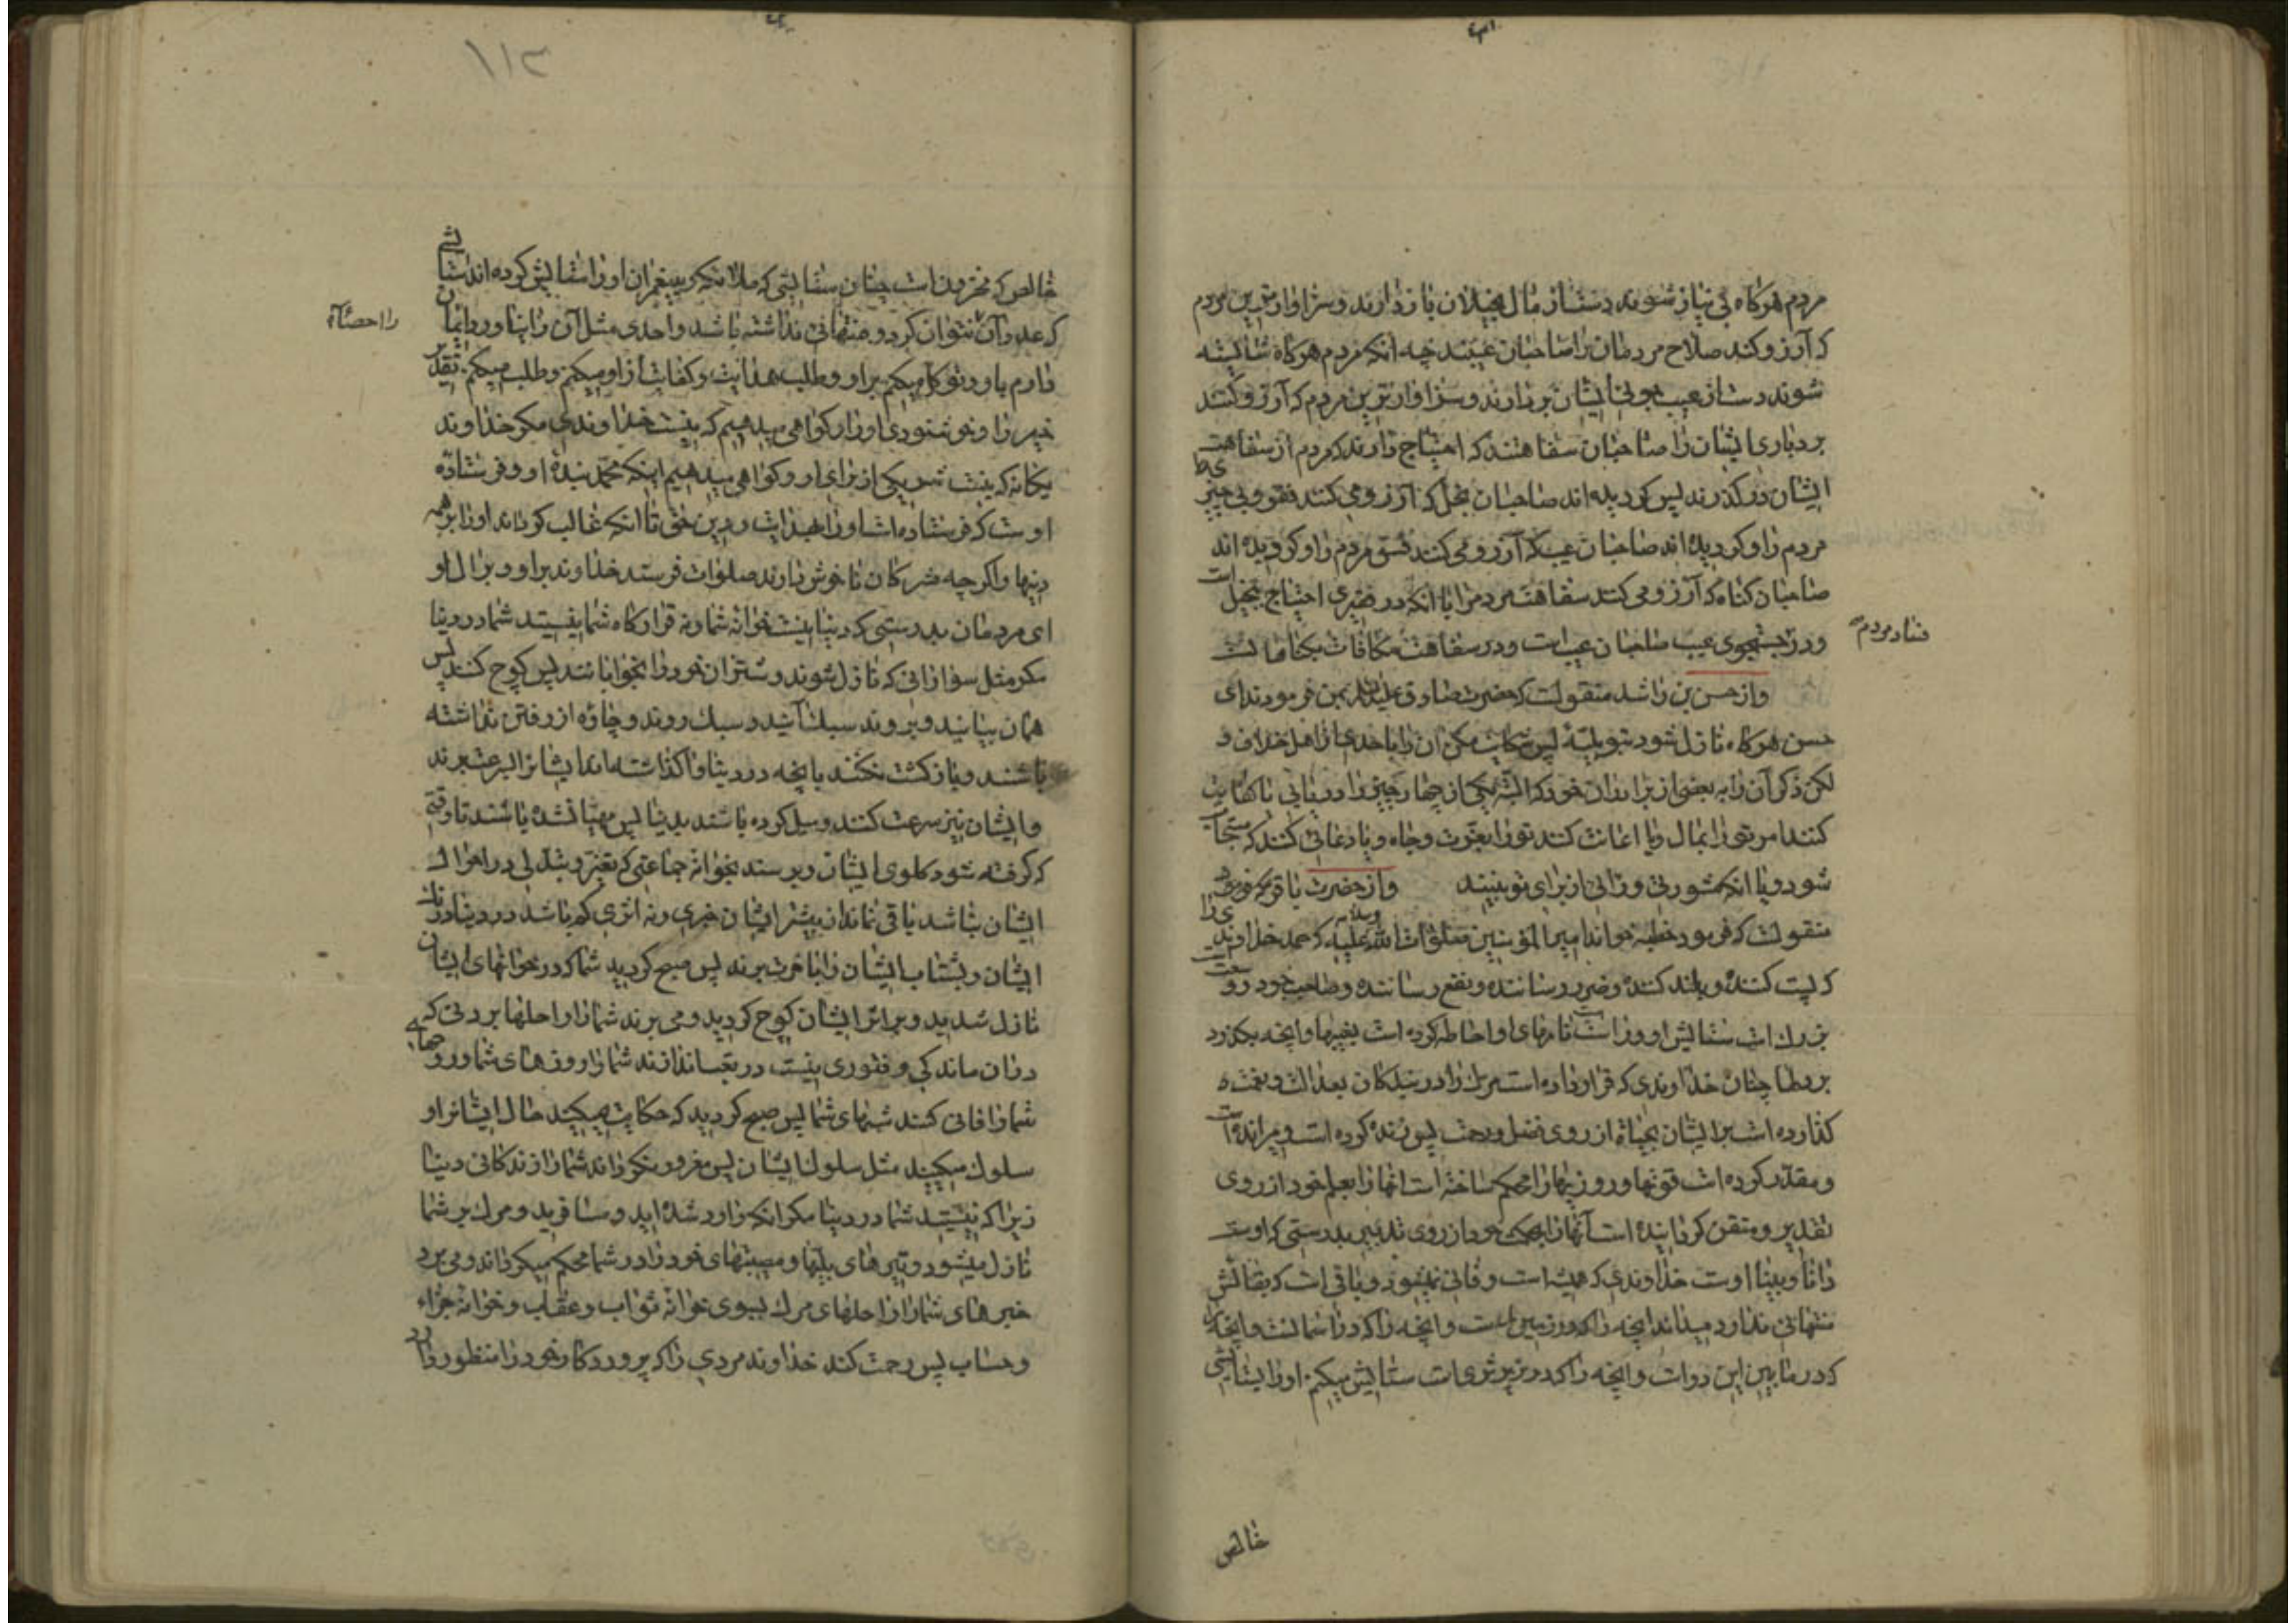 مردم هرکاه بی نیاز شوند دست از مال بخیلان باز دارند و سزاوارترین مردم
که آرزو کند صلاح مردمان را صاحبان عیبند چه آنکه مردم هرکاه شایسته
شوند دست از عیب جوئی ایشان بردارند و سزاوارترین مردم که آرزو کنند
بردباری ایشان را صاحبان سفاهتند که احتیاج دارند که مردم از سفاهت
ایشان درکذرند پس کردیده اند صاحبان بخل که آرزو می کنند فقر و بی چیزی
مردم را و کردیده اند صاحبان عیب که آرزو می کنند فسق مردم را و کردیده اند
صاحبان کناه که آرزو می کنند سفاهت مردم را با آنکه در فقیری احتیاج ببخیل است
و در جستجوی عیب صاحبان عیب است و در سفاهت مکافات بکناهانست
فساد مردم
واز حسن بن راشد منقولست که حضرت صادق علیه السلام بمن فرمودند ای
حسن هرکاه نازل شود بتو بلیّهٔ پس شکایت مکن آن را باحدی از اهل خلاف و
لکن ذکر آن را به بعضی از برادران خود که البته یکی از چهار چیز را دریابی یا کفایت
کنند امر تو را بمال و یا اعانت کنند تو را بعزّت و جاه و یا دعائی کنند که مستجاب
شود و یا آنکه مشورتی و رائی از برای تو ببینند واز حضرت باقر
منقولست که فرمود خطبه خواند امیرالمؤمنین صلوات الله علیه و سلامه که حمد خداوندی را
که پست کننده و بلند کننده و ضرر رساننده و نفع رساننده و صاحب جود
بزرك است ستایش او و راست نامهای او احاطه کرده است بغیبها و آنچه بکذرد
بر دلها چنان خداوندی که قرار داده است مرك را در بندکان بعدالت و نعمت
کذارده است بر ایشان بحیاة از روی فضل و رحمت پس زنده کرده است و میرانده است
و مقدّر کرده است قوتها و روزیها را محکم ساخته است آنها را بعلم خود از روی
تقدیر و متقن کردانیده است آنها را بحکمت خود از روی تدبیر بدرستی که اوست
دانا و بینا اوست خداوندی که همیشه است و فانی نمیشود و باقی است که بقائش
منتهائی ندارد میداند آنچه را که در زمین است و آنچه را که در آسمانست و آنچه را
که در مابین این دو است و آنچه را که در زیر ثری است ستایش میکنم او را بستایشی
خالص
۱۱۲
خالص که مخزون است چنان ستایشی که ملائکه و پیغمبران او را ستایش کرده اند ستایشی
که عدد آن نتوان کرد و منتهائی نداشته باشد و احدی مثل آن را نیاورد و ایمان
را احصاء
دارم باو و توکل میکنم بر او و طلب هدایت و کفایت از او میکنم و طلب میکنم تقدیر
خیر را و خوشنودی او را و کواهی میدهیم که نیست خداوندی مکر خداوند
یکانه که نیست شریکی از برای او و کواهی میدهیم اینکه محمّد بندهٔ او و فرستاده
اوست که فرستاده است او را بهدایت و دین حق تا آنکه غالب کرداند او را بر همه
دینها و اکرچه مشرکان ناخوش دارند صلوات فرستد خداوند بر او و بر آل او
ای مردمان بدرستی که دنیا نیست خوانه شما و نه قرارکاه شما نیستید شما در دنیا
مکر مثل سوارانی که نازل شوند و شتران خود را بخوابانند پس کوچ کنند پس
همان بیایند و بروند سبك آیند و سبك روند و چاره از رفتن نداشته
باشند و باز کشت نکنند بآنچه در دنیا وا کذاشته اند ایشانرا بسرعت برند
و ایشان نیز سرعت کنند و میل کرده باشند بدنیا پس مهیّا نشده باشند تا وقتی
که کرفته شود کلوی ایشان و برسند بخوانه جماعتی که تغیّر و تبدّلی در احوال
ایشان نباشد باقی نماند از بیشتر ایشان خبری و نه اثری کم باشد در دنیا درنك
ایشان و بشتاب ایشان را بآخرت برند پس صبح کردید شما که در خوانهای ایشان
نازل شدید و بر اثر ایشان کوچ کردید و می برند شما را راحلها بردنی که
در آن ماندکی و فتوری نیست در تعب اندازند شما را روزهای شما و روحهای
شما را فانی کنند شبهای شما پس صبح کردید که حکایت میکنید حال ایشانرا و
سلوك میکنید مثل سلوك ایشان پس مغرور نکرداند شما را زندکانی دنیا
زیرا که نیستید شما در دنیا مکر آنکه وارد شده اید و مسافرید و مرك بر شما
نازل میشود و تیرهای بلیّها و مصیبتهای خود را در شما محکم میکرداند و می برد
خبرهای شما را راحلهای مرك بسوی خوانه ثواب و عقاب و خوانه جزاء
و حساب پس رحمت کند خداوند مردی را که پروردکار خود را منظور دارد